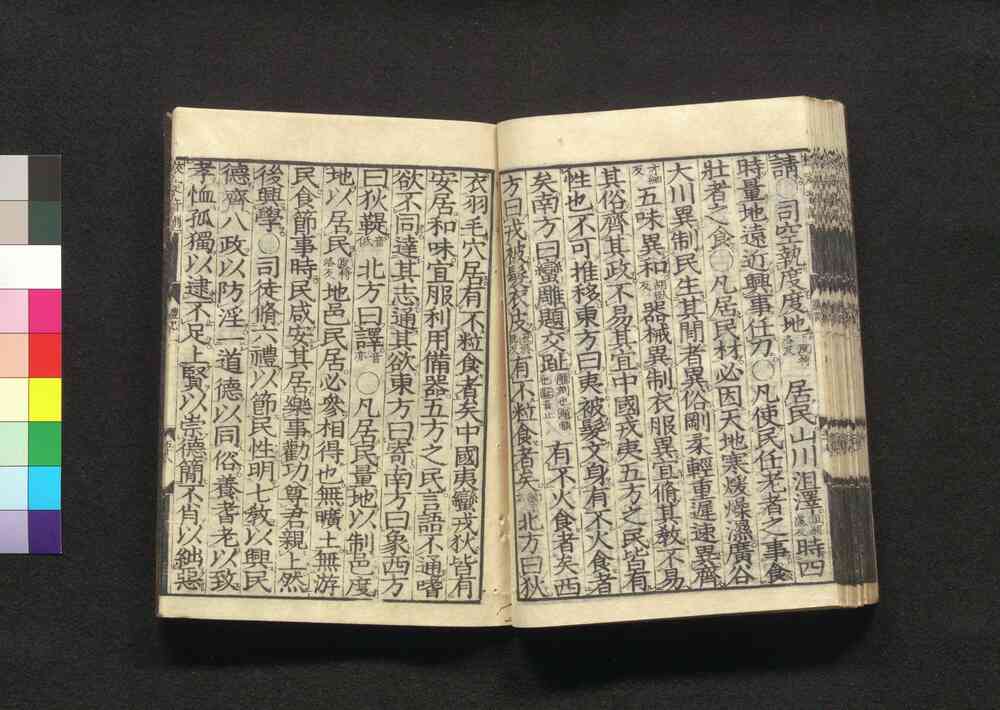 請○司空執度度地居民山川沮澤時四
時量地遠近興事任力○凡使民任老者之事食
壯者之食○凡居民材必因天地寒煖燥濕廣谷
大川異制民生其間者異俗剛柔輕重遲速異齊
五味異和器械異制衣服異宜脩其教不易
其俗齊其政不易其宜中國戎夷五方之民皆有
性也不可推移東方曰夷被髮文身有不火食者
矣南方曰蠻雕題交趾有不火食者矣西
方曰戎被髮衣皮有不粒食者矣北方曰狄
衣羽毛穴居有不粒食者矣中國夷蠻戎狄皆有
安居和味宜服利用備器五方之民言語不通嗜
欲不同達其志通其欲東方曰寄南方曰象西方
曰狄鞮音低北方曰譯音亦○凡居民量地以制邑度
地以居民地邑民居必參相得也無曠土無游
民食節事時民咸安其居樂事勸功尊君親上然
後興學○司徒脩六禮以節民性明七教以興民
德齊八政以防淫一道德以同俗養耆老以致
孝恤孤獨以逮不足上賢以崇德簡不肖以絀惡